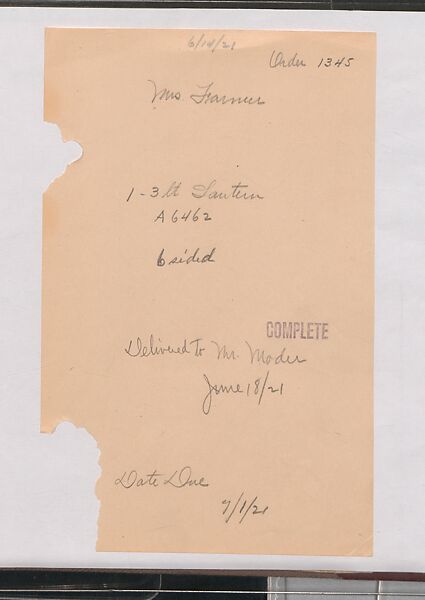 6/14/21
Order 1345
Mrs. Farmer
1-3 lt Lantern
A 6462
6 sided
COMPLETE
Delivered to Mr. Moder
June 18/21
Date Due
7/1/21